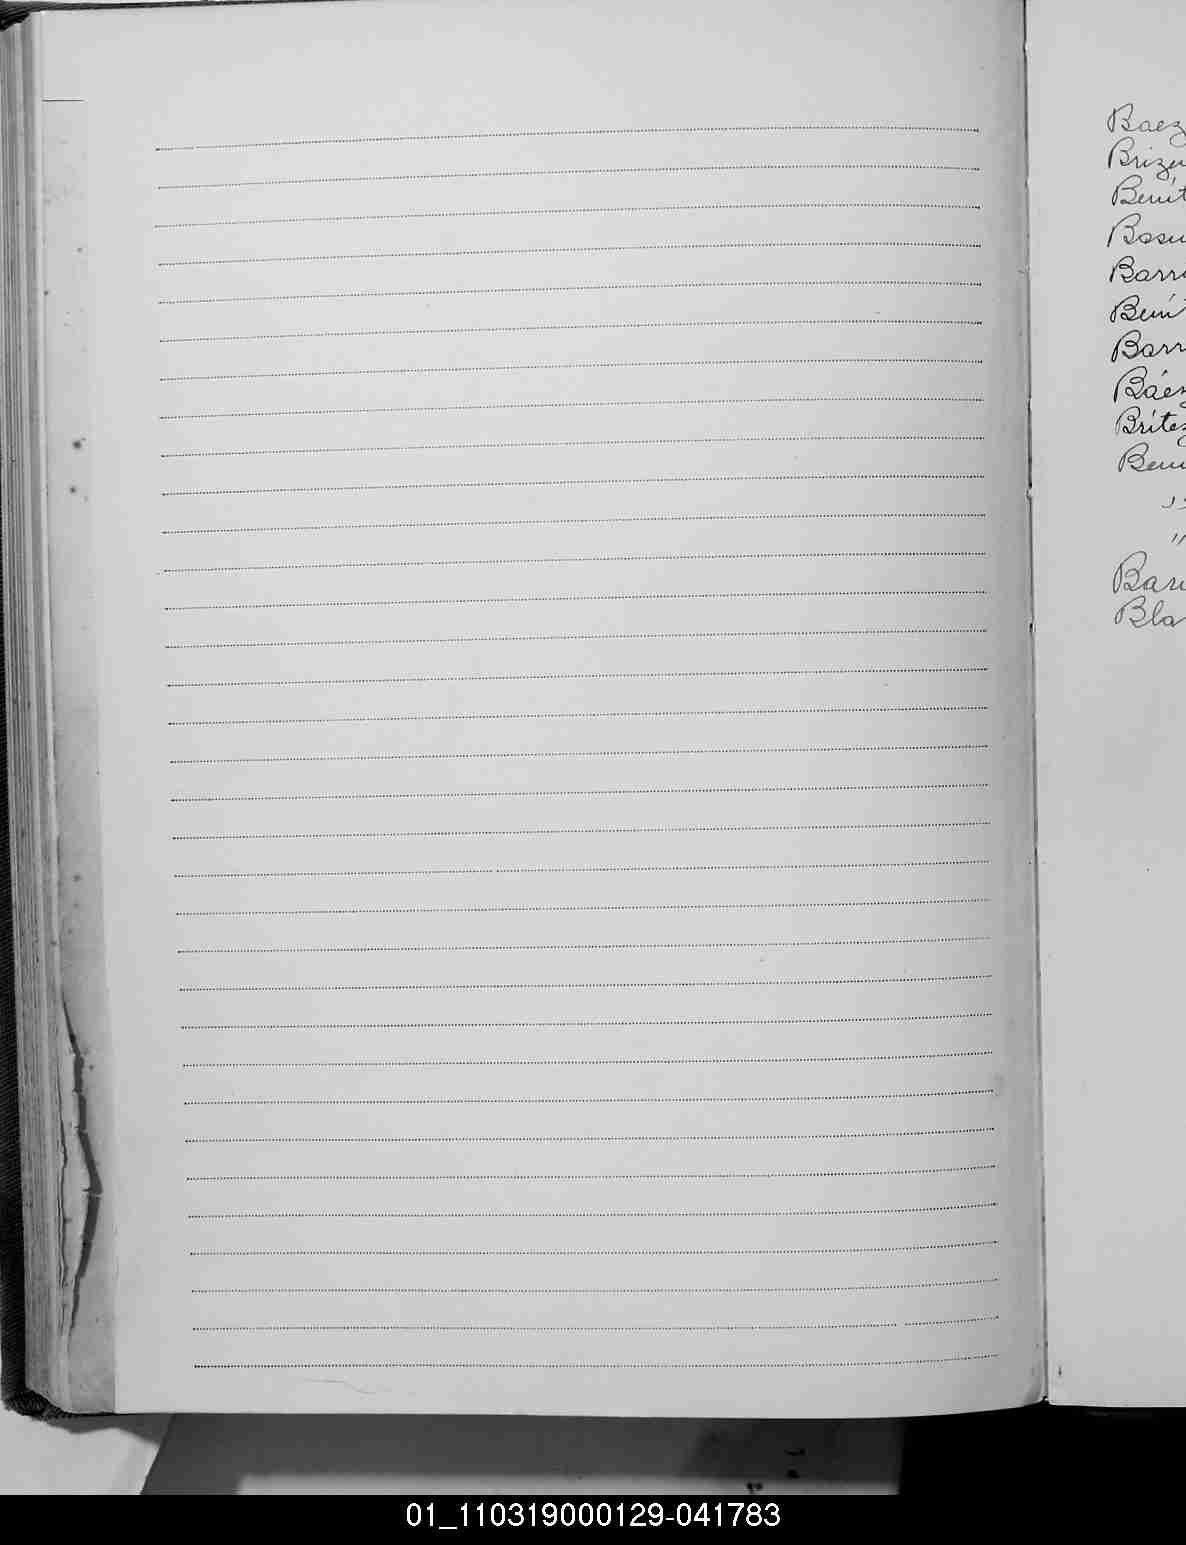 Baez
Brizu
Benít
Bosu
Barr
Bení
Barr
Báez
Brítez
Beni
"
"
Bar
Bla
01_110319000129-041783